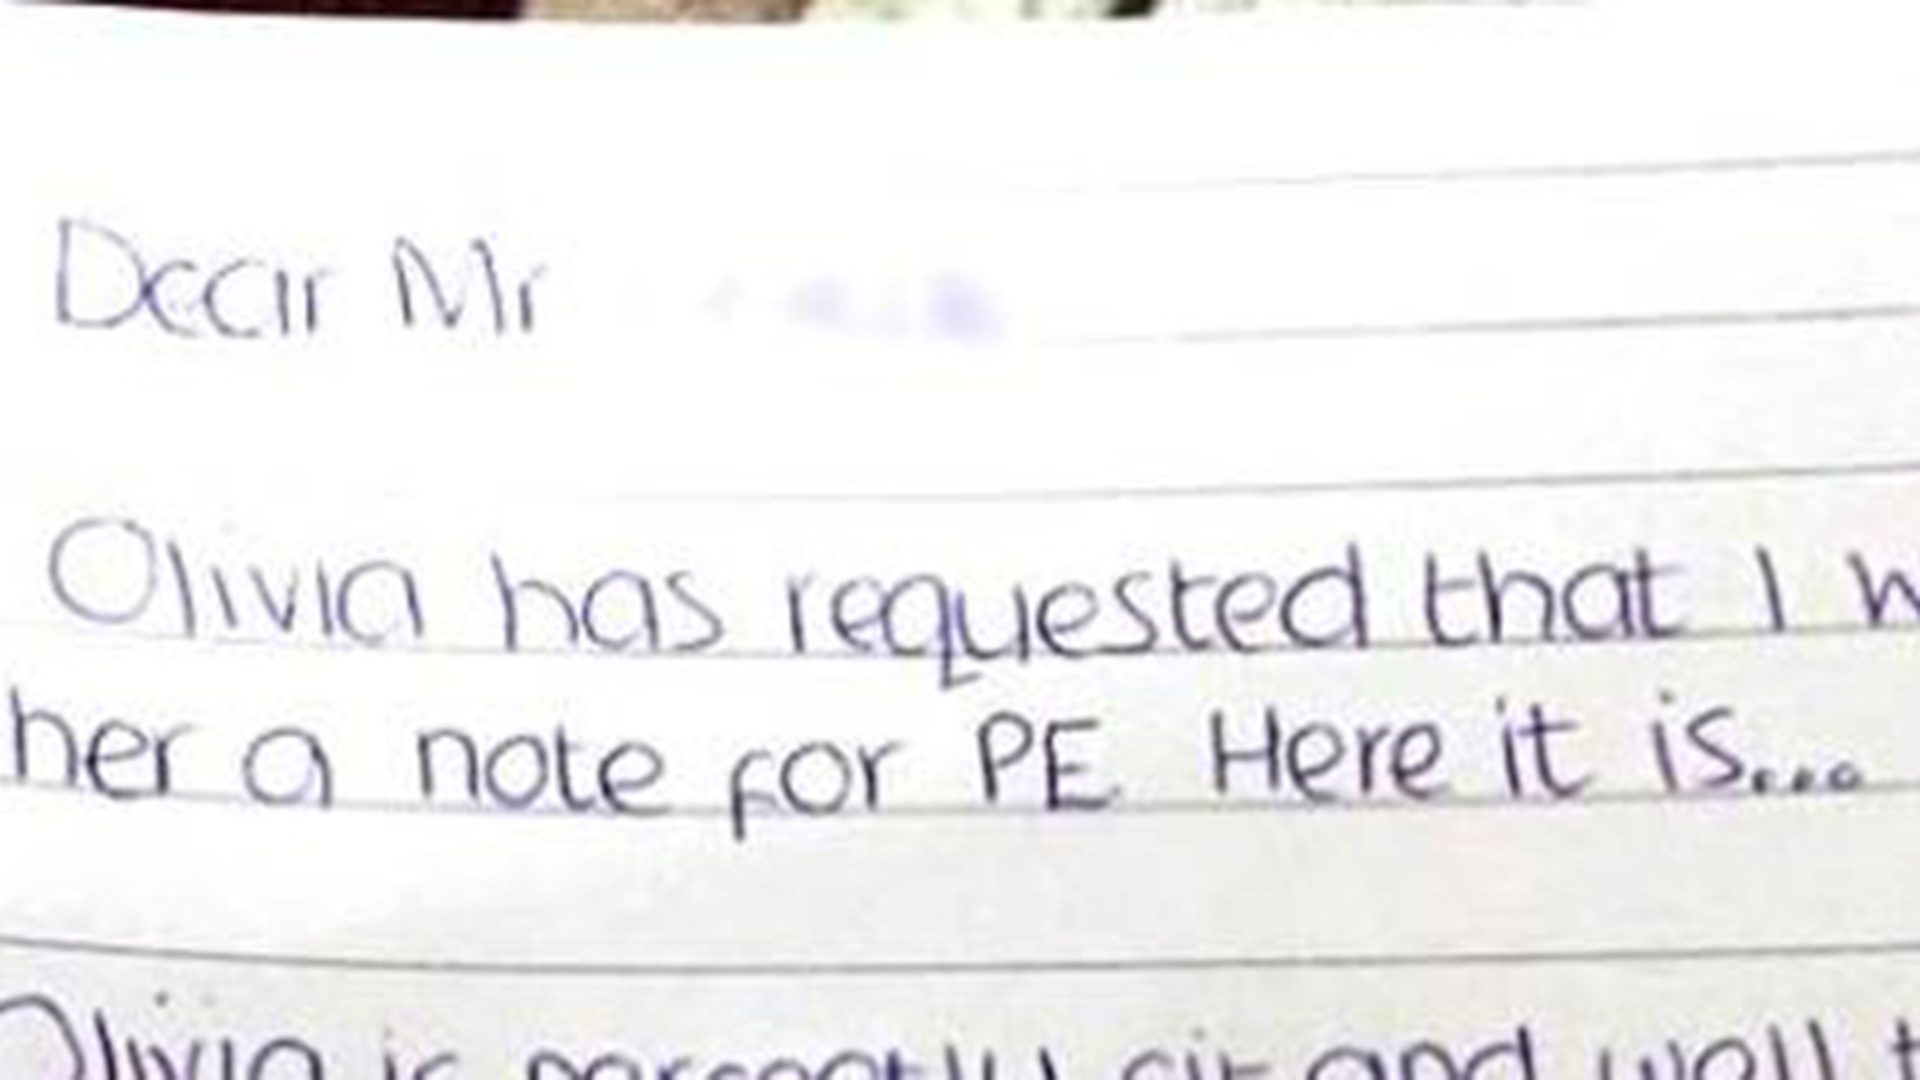 Dear Mr
Olivia has requested that I w
her a note for PE. Here it is...
Olivia is perfectly fit and well t